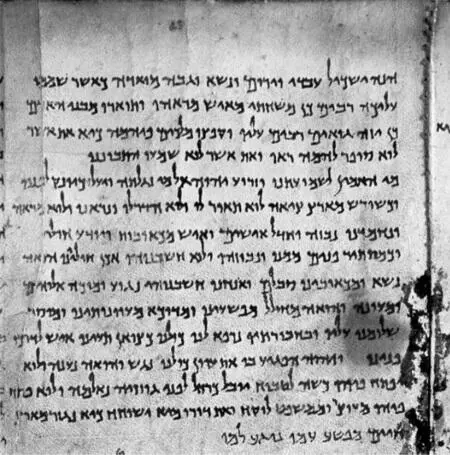 הנה ישכיל עבדי וירום ונשא וגבה מואדה כאשר שממו
עליכה רבים כן משחתי מאיש מראהו ותוארו מבני האדם
כן יזה גואים רבים עליו וקפצו מלכים פיהמה כיא את אשר
לוא סופר להמה ראו ואת אשר לוא שמעו התבוננו
מי האמין לשמועתנו וזרוע יהוה אל מי נגלתה ויעל כיונק לפניו
וכשורש מארץ ציאה לוא תואר לו ולוא הדר לו ונראנו ולוא מראה
ונחמדנו נבזה וחדל אישים ואיש מכאובות ויודע חולי
וכמסתיר פנים ממנו ונבוזהו ולוא חשבנוהו אכן חוליינו הואה
נשא ומכאובינו סבלם ואנחנו חשבנוהו נגוע ומוכה אלוהים
ומעונה והואה מחולל מפשעינו ומדוכא מעוונותינו ומוסר
שלומנו עליו ובחבורתיו נרפא לנו כולנו כצואן תעינו איש לדרכו
פנינו ויהוה הפגיע בו את עוון כולנו נגש והואה נענה ולוא
פתח פיהו כשה לטבוח יובל כרחל לפני גוזזיה נאלמה ולוא פתח
פיהו מעוצר וממשפט לוקח ואת דורו מיא ישוחח כיא נגזר מארץ
חיים מפשע עמו נוגע למו